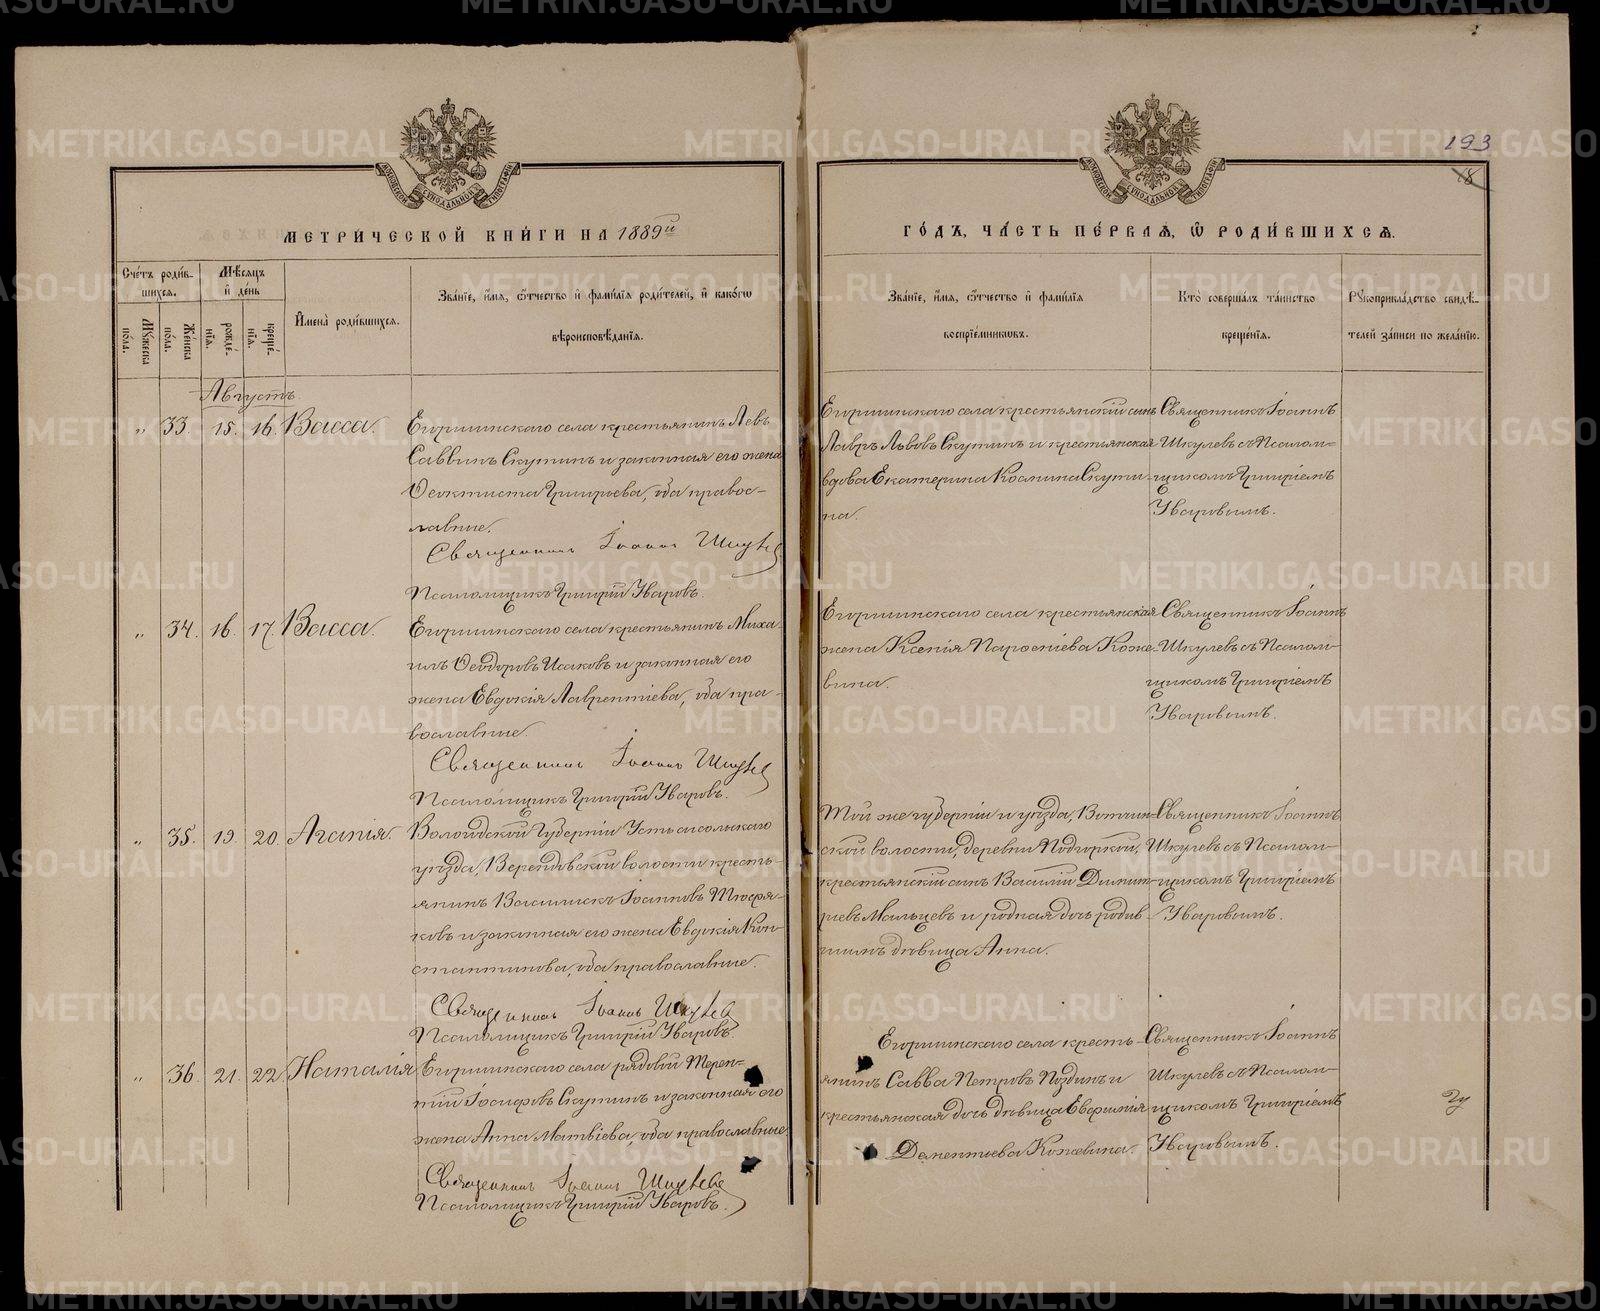 METRIKI.GASO-URAL.RU
193
18
МЕТРИ́ЧЕСКОЙ КНИ́ГИ НА 1889й
ГО́ДЪ, ЧА́СТЬ ПЕ́РВАѦ, Ѡ РОДИ́ВШИХСѦ.
Сче́тъ роди́в-
шихсѧ.
Мѣ́сѧцъ
и де́нь
Мꙋ́жеска
по́ла.
Же́нска
по́ла.
рожде́-
нїѧ.
креще́-
нїѧ.
Имена̀ роди́вшихсѧ.
Зва́нїе, и́мѧ, ѻ҆́тчество и фами́лїѧ роди́телей, и како́гѡ
вѣроисповѣ́данїѧ.
Зва́нїе, и́мѧ, ѻ҆́тчество и фами́лїѧ
воспрїе́мникѡвъ.
Кто̀ соверша́лъ та́инство
креще́нїѧ.
Рꙋкоприкла́дство свидѣ́-
телей за́писи по жела́нїю.
Августъ.
„ 33. 15. 16. Васса.
Егоршинскаго села крестьянинъ Левъ
Саввинъ Скутинъ и законная его жена
Ѳеоктиста Григорьева, оба правос-
лавные.
Священникъ Іоаннъ Шкулев
Псаломщикъ Григорій Уваровъ.
Егоршинскаго села крестьянскій сынъ
Лавръ Львовъ Скутинъ и крестьянская
вдова Екатерина Космина Скути-
на.
Священникъ Іоаннъ
Шкулевъ съ Псалом-
щикомъ Григоріемъ
Уваровымъ.
„ 34. 16. 17. Васса.
Егоршинскаго села крестьянинъ Миха-
илъ Ѳеодоровъ Исаковъ и законная его
жена Евдокія Лаврентіева, оба пра-
вославные.
Священникъ Іоаннъ Шкулев
Псаломщикъ Григорій Уваровъ.
Егоршинскаго села крестьянская
жена Ксенія Парѳеніева Коже-
вина.
Священникъ Іоаннъ
Шкулевъ съ Псалом-
щикомъ Григоріемъ
Уваровымъ.
„ 35. 19. 20. Агапія.
Вологодской Губерніи Устьсысольскаго
уѣзда, волости кресть-
янинъ Василискъ Іоанновъ Тюфря-
ковъ и законная его жена Евдокія Кон-
стантинова, оба православные.
Священникъ Іоаннъ Шкулев
Псаломщикъ Григорій Уваровъ.
Той же губерніи и уѣзда, Вотчин-
ской волости, деревни Подгорной,
крестьянскій сынъ Василій Димит-
ріевъ Мальцевъ и родная дочь родив-
шихъ дѣвица Анна.
Священникъ Іоаннъ
Шкулевъ съ Псалом-
щикомъ Григоріемъ
Уваровымъ.
„ 36. 21. 22. Наталія
Егоршинскаго села рядовой Терен-
тій Іосифовъ Скутинъ и законная его
жена Анна Матвіева, оба православные
Священникъ Іоаннъ Шкулев
Псаломщикъ Григорій Уваровъ.
Егоршинскаго села кресть-
янинъ Савва Петровъ Поздинъ и
крестьянская дочь дѣвица Евфимія
Дементьева Кожевина.
Священникъ Іоаннъ
Шкулевъ съ Псалом-
щикомъ Григоріемъ
Уваровымъ.